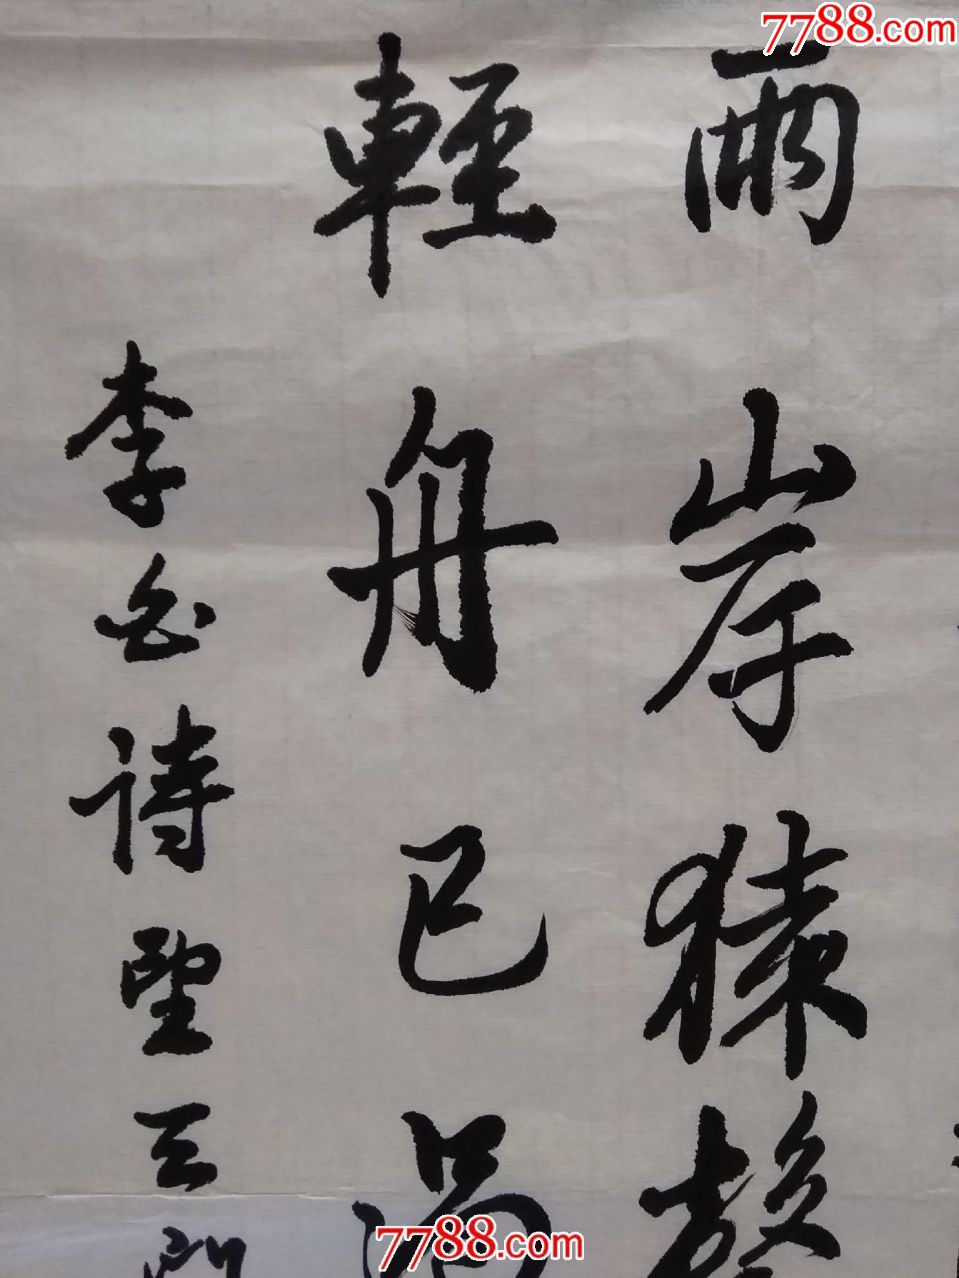 7788.com
兩岸猿聲
輕舟已過
李白詩聖三
7788.com